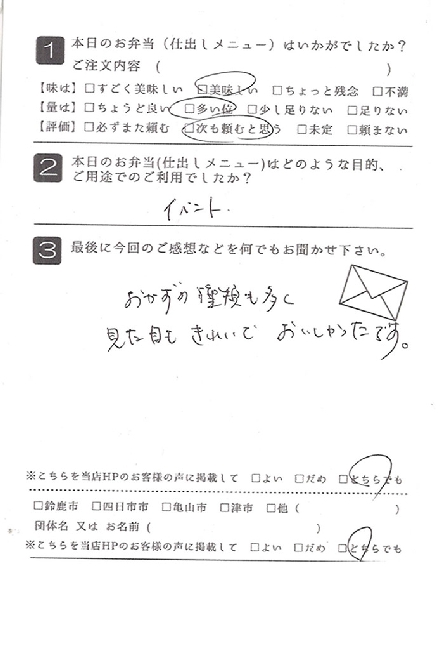 1 本日のお弁当（仕出しメニュー）はいかがでしたか？
ご注文内容 （ ）
【味は】□すごく美味しい □美味しい □ちょっと残念 □不満
【量は】□ちょうど良い □多い位 □少し足りない □足りない
【評価】□必ずまた頼む □次も頼むと思う □未定 □頼まない
2 本日のお弁当(仕出しメニュー)はどのような目的、
ご用途でのご利用でしたか？
イベント.
3 最後に今回のご感想などを何でもお聞かせ下さい。
おかずの種類も多く
見た目も きれいで おいしかったです。
※こちらを当店HPのお客様の声に掲載して □よい □だめ □どちらでも
□鈴鹿市 □四日市市 □亀山市 □津市 □他（ ）
団体名 又は お名前（ ）
※こちらを当店HPのお客様の声に掲載して □よい □だめ □どちらでも